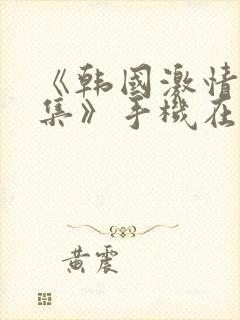 《韩國激情
集》手機在
黄震